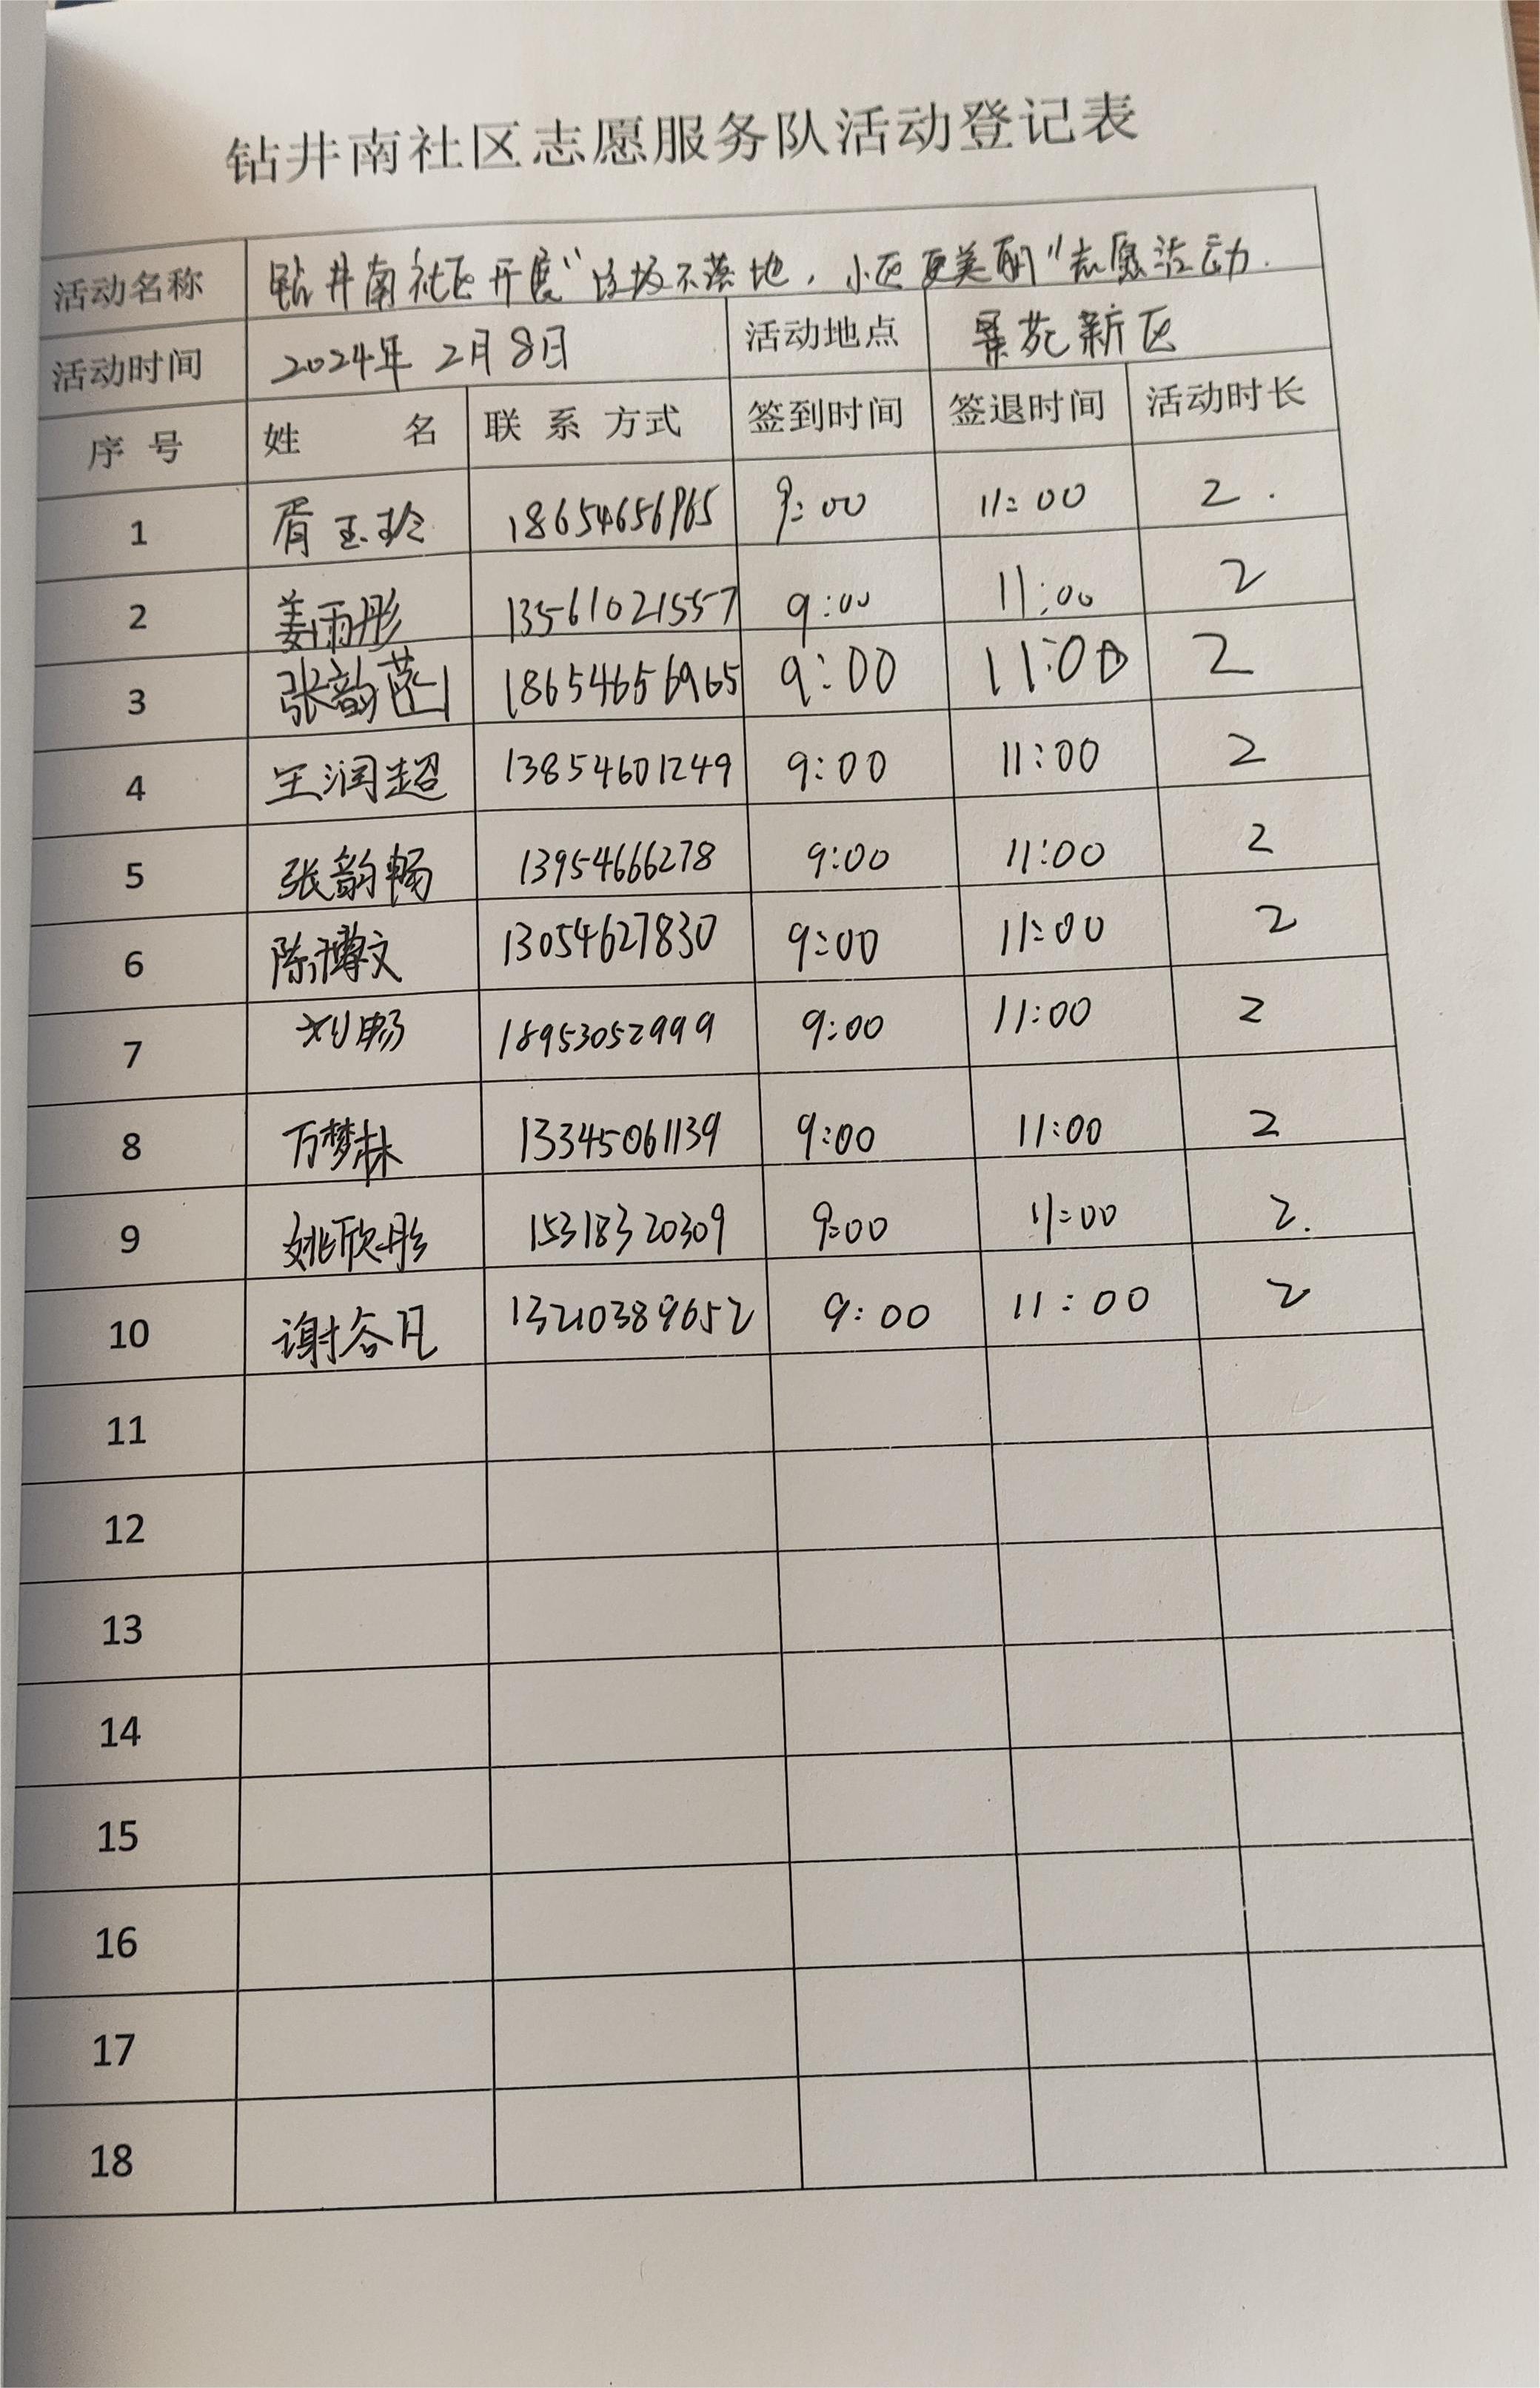 钻井南社区志愿服务队活动登记表
活动名称 钻井南社区开展“垃圾不落地，小区更美丽”志愿活动.
活动时间 2024年2月8日 活动地点 景苑新区
序号 姓名 联系方式 签到时间 签退时间 活动时长
1 胥玉玲 18654656965 9:00 11:00 2.
2 姜雨彤 13561021557 9:00 11:00 2
3 张韵 18654656965 9:00 11:00 2
4 王润超 13854601249 9:00 11:00 2
5 张韵畅 13954666278 9:00 11:00 2
6 陈博文 13054627830 9:00 11:00 2
7 刘畅 18953052999 9:00 11:00 2
8 万梦林 13345061139 9:00 11:00 2
9 姚欣彤 15318320309 9:00 11:00 2.
10 谢谷凡 13210389652 9:00 11:00 2
11
12
13
14
15
16
17
18